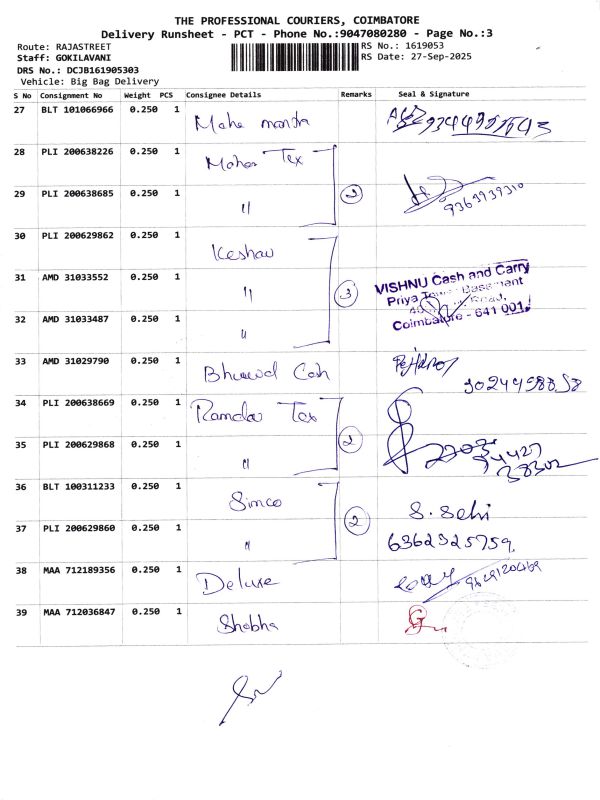 THE PROFESSIONAL COURIERS, COIMBATORE
Delivery Runsheet - PCT - Phone No.:9047080280 - Page No.:3
Route: RAJASTREET RS No.: 1619053
Staff: GOKILAVANI RS Date: 27-Sep-2025
DRS No.: DCJB161905303
Vehicle: Big Bag Delivery
S No Consignment No Weight PCS Consignee Details Remarks Seal & Signature
27 BLT 101066966 0.250 1 Maha mantra
28 PLI 200638226 0.250 1 Mahar Tex
29 PLI 200638685 0.250 1 " 2 9363939310
30 PLI 200629862 0.250 1 Keshav
31 AMD 31033552 0.250 1 " 3 VISHNU Cash and Carry
Priya Tower Basement
Road,
32 AMD 31033487 0.250 1 " Coimbatore - 641 001.
33 AMD 31029790 0.250 1
34 PLI 200638669 0.250 1 Ramdev Tex
35 PLI 200629868 0.250 1 " 2 74427
38302
36 BLT 100311233 0.250 1 Simco S. Selvi
37 PLI 200629860 0.250 1 " 2 6362325759
38 MAA 712189356 0.250 1 Deluxe
39 MAA 712036847 0.250 1 Shobha